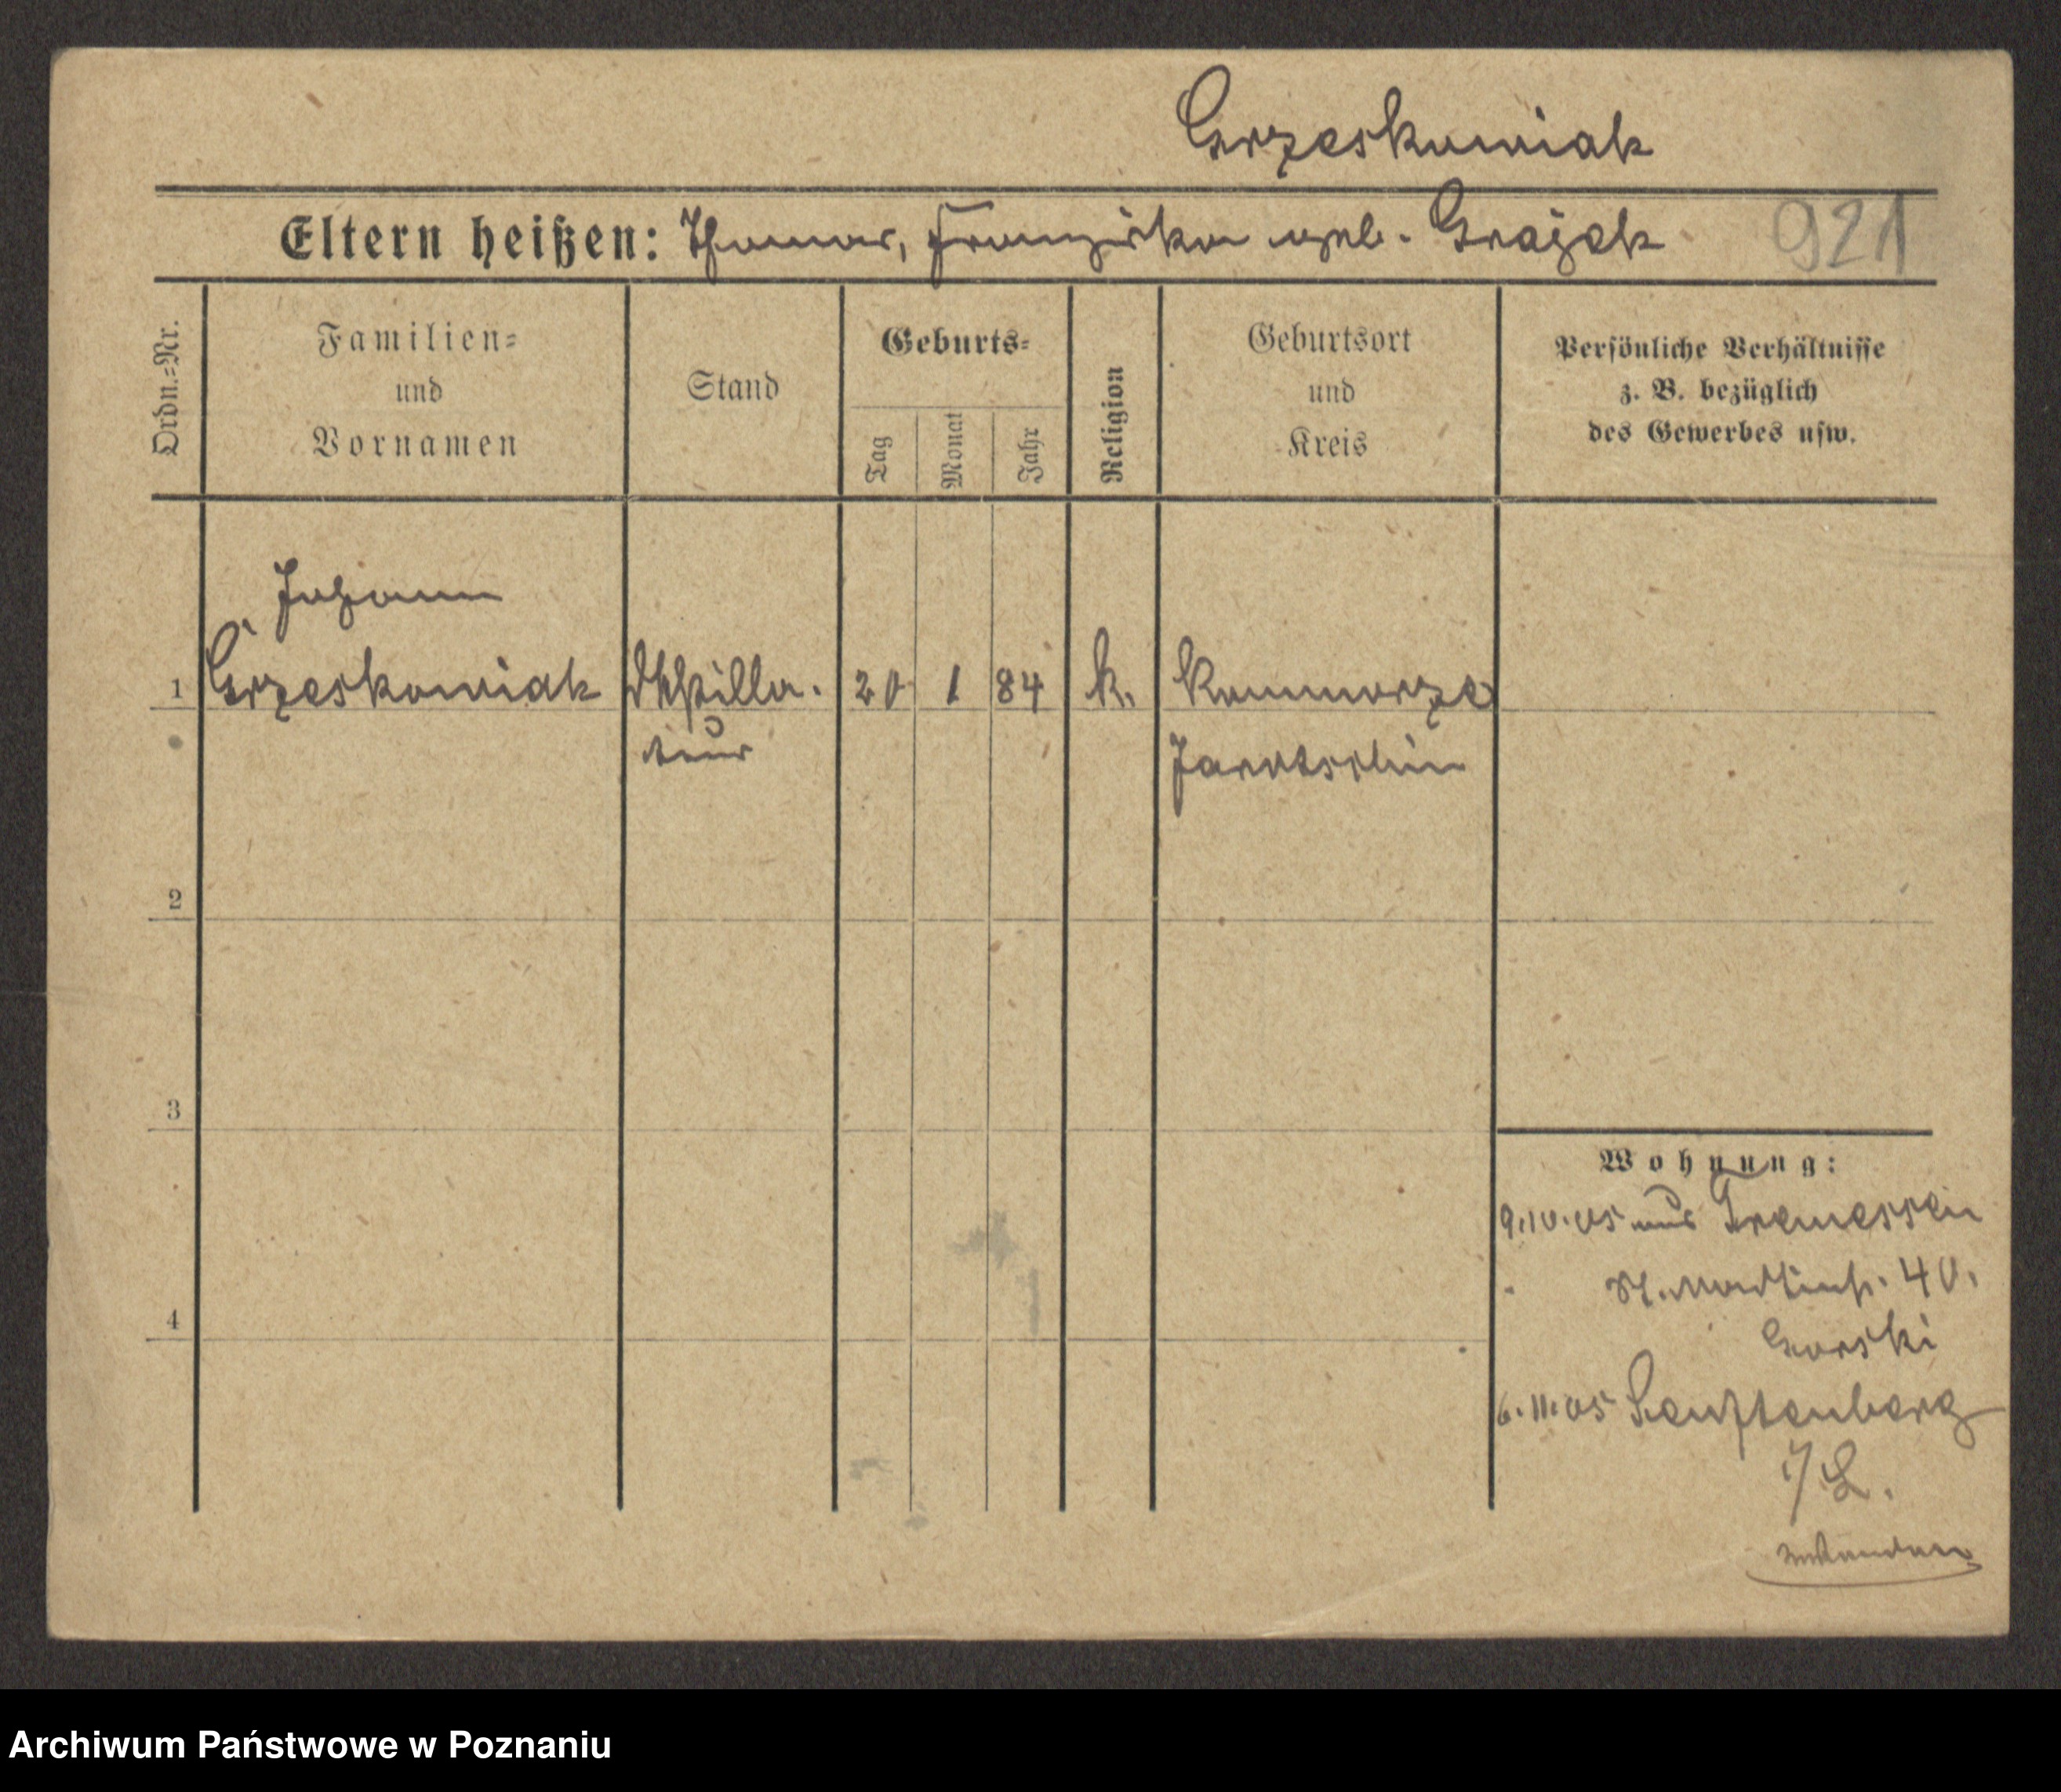 Grzeskowiak
Eltern heißen: Thomas, Franziska geb. Grajek
921
Ordn.-Nr.
Familien- und Vornamen
Stand
Geburts-
Tag
Monat
Jahr
Religion
Geburtsort und Kreis
Persönliche Verhältnisse
z. B. bezüglich
des Gewerbes usw.
Johann
1 Grzeskowiak Destilla- 20 1 84 k.
teur Jarotschin
2
3
4
Wohnung:
9.10.05 aus Tremessen
St. Martinstr. 40.
Gorski
6.11.05 Senftenberg
i/L.
Archiwum Państwowe w Poznaniu